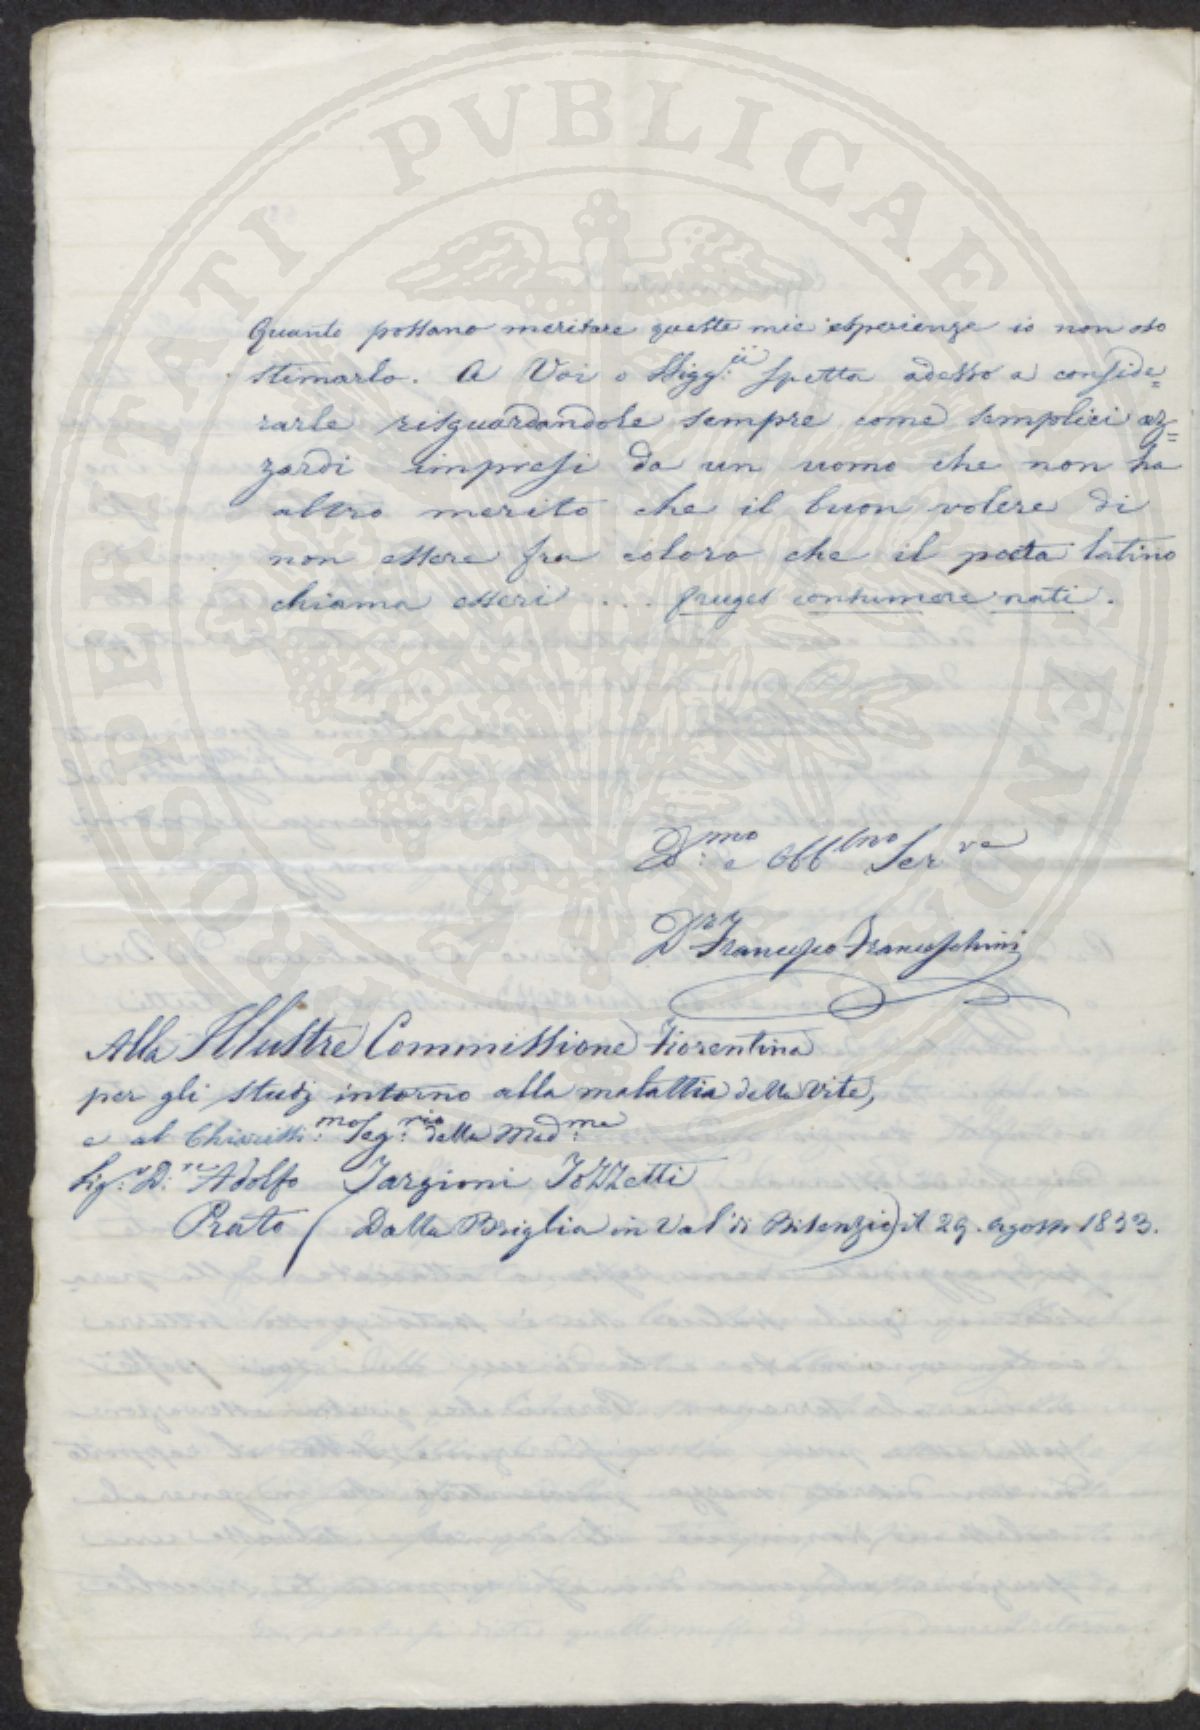 PROSPERITATI PVBLICAE AVGENDAE
Quanto possano meritare queste mie esperienze io non oso
stimarlo. A Voi o Sigg:ii spetta adesso a conside=
rarle risguardandole sempre come semplici az=
zardi impresi da un uomo che non ha
altro merito che il buon volere di
non essere fra coloro che il poeta latino
chiama esseri .... fruges consumere nati.
D:mo e Obblmo Serve
Dr Francesco Franceschini
Alla Illustre Commissione Fiorentina
per gli studj intorno alla malattia della vite,
e al Chiariss:mo Seg:rio della Med:ma
Sig:r D:re Adolfo Targioni Tozzetti
Prato (Dalla Briglia in Val di Bisenzio) il 29. agosto 1853.